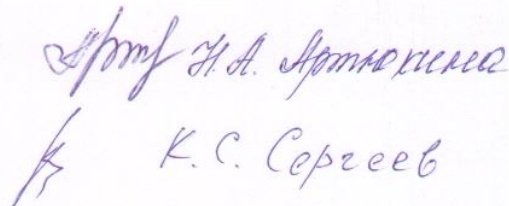 Н.А. Артюхина
К.С. Сергеев